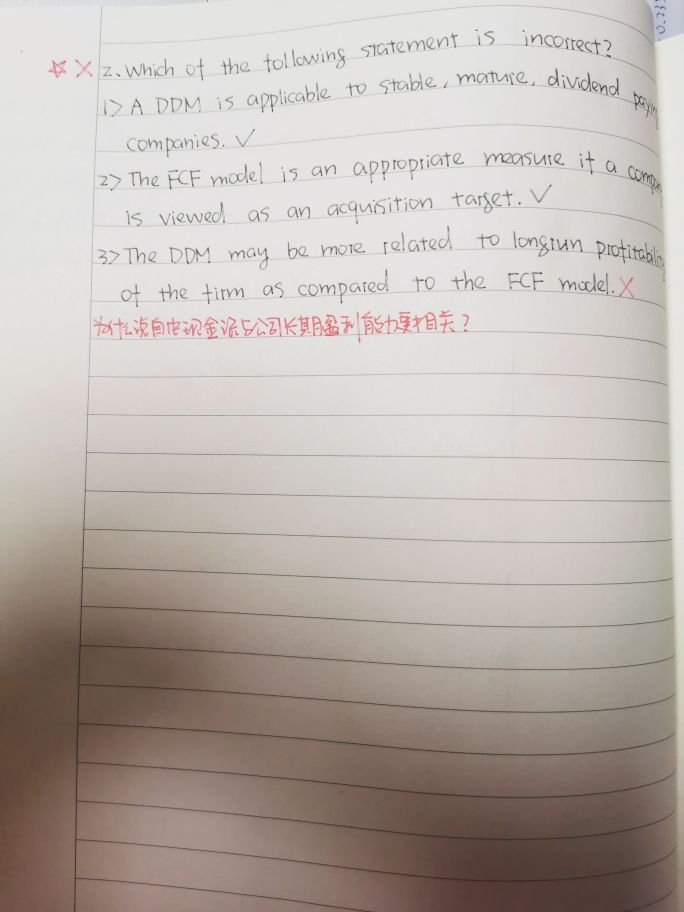 ☆ X 2. Which of the following statement is incorrect?
1> A DDM is applicable to stable, mature, dividend payin
companies. ✓
2> The FCF model is an appropriate measure if a compan
is viewed as an acquisition target. ✓
3> The DDM may be more related to longrun profitabili
of the firm as compared to the FCF model. X
为什么说自由现金流与公司长期盈利能力更相关?